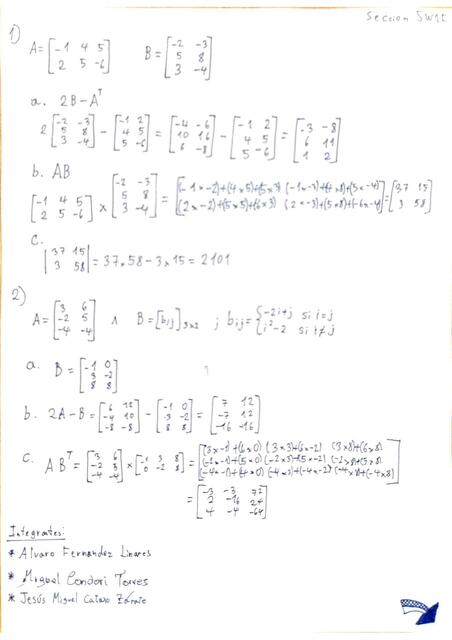 Seccion SW1E
1)
A = [-1 4 5; 2 5 -6]   B = [-2 -3; 5 8; 3 -4]
a. 2B - Aᵀ
2[-2 -3; 5 8; 3 -4] - [-1 2; 4 5; 5 -6] = [-4 -6; 10 16; 6 -8] - [-1 2; 4 5; 5 -6] = [-3 -8; 6 11; 1 2]
b. AB
[-1 4 5; 2 5 -6] × [-2 -3; 5 8; 3 -4] = [(-1×-2)+(4×5)+(5×3) (-1×-3)+(4×8)+(5×-4); (2×-2)+(5×5)+(6×3) (2×-3)+(5×8)+(-6×-4)] = [37 15; 3 58]
c.
|37 15; 3 58| = 37×58 - 3×15 = 2101
2)
A = [3 6; -2 5; -4 -4] ∧ B = [bij]3×2 ; bij = {-2i+j si i=j; i²-2 si i≠j
a. B = [-1 0; 3 -2; 8 8]
b. 2A - B = [6 12; -4 10; -8 -8] - [-1 0; 3 -2; 8 8] = [7 12; -7 12; -16 -16]
c. ABᵀ = [3 6; -2 5; -4 -4] × [-1 3 8; 0 -2 8] = [(3×-1)+(6×0) (3×3)+(6×-2) (3×8)+(6×8); (-2×-1)+(5×0) (-2×3)+(5×-2) (-2×8)+(5×8); (-4×-1)+(-4×0) (-4×3)+(-4×-2) (-4×8)+(-4×8)]
= [-3 -3 72; 2 -16 24; 4 -4 -64]
Integrantes:
* Alvaro Fernandez Linares
* Miguel Condori Torres
* Jesús Miguel Zárate